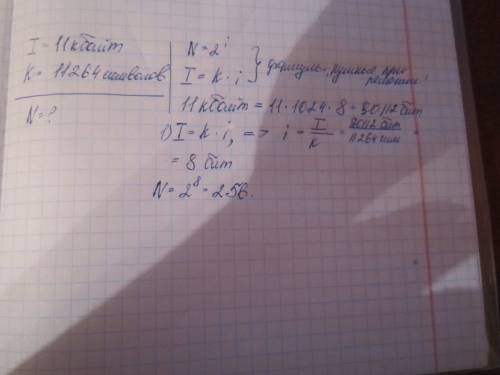 I = 11 кбайт
K = 11264 символов
N = ?
N = 2^i
I = K · i
формулы, нужные при решении!
11 кбайт = 11 · 1024 · 8 = 90112 бит
1) I = K · i, => i = I/K = 90112 бит/11264 сим
= 8 бит
N = 2^8 = 256.